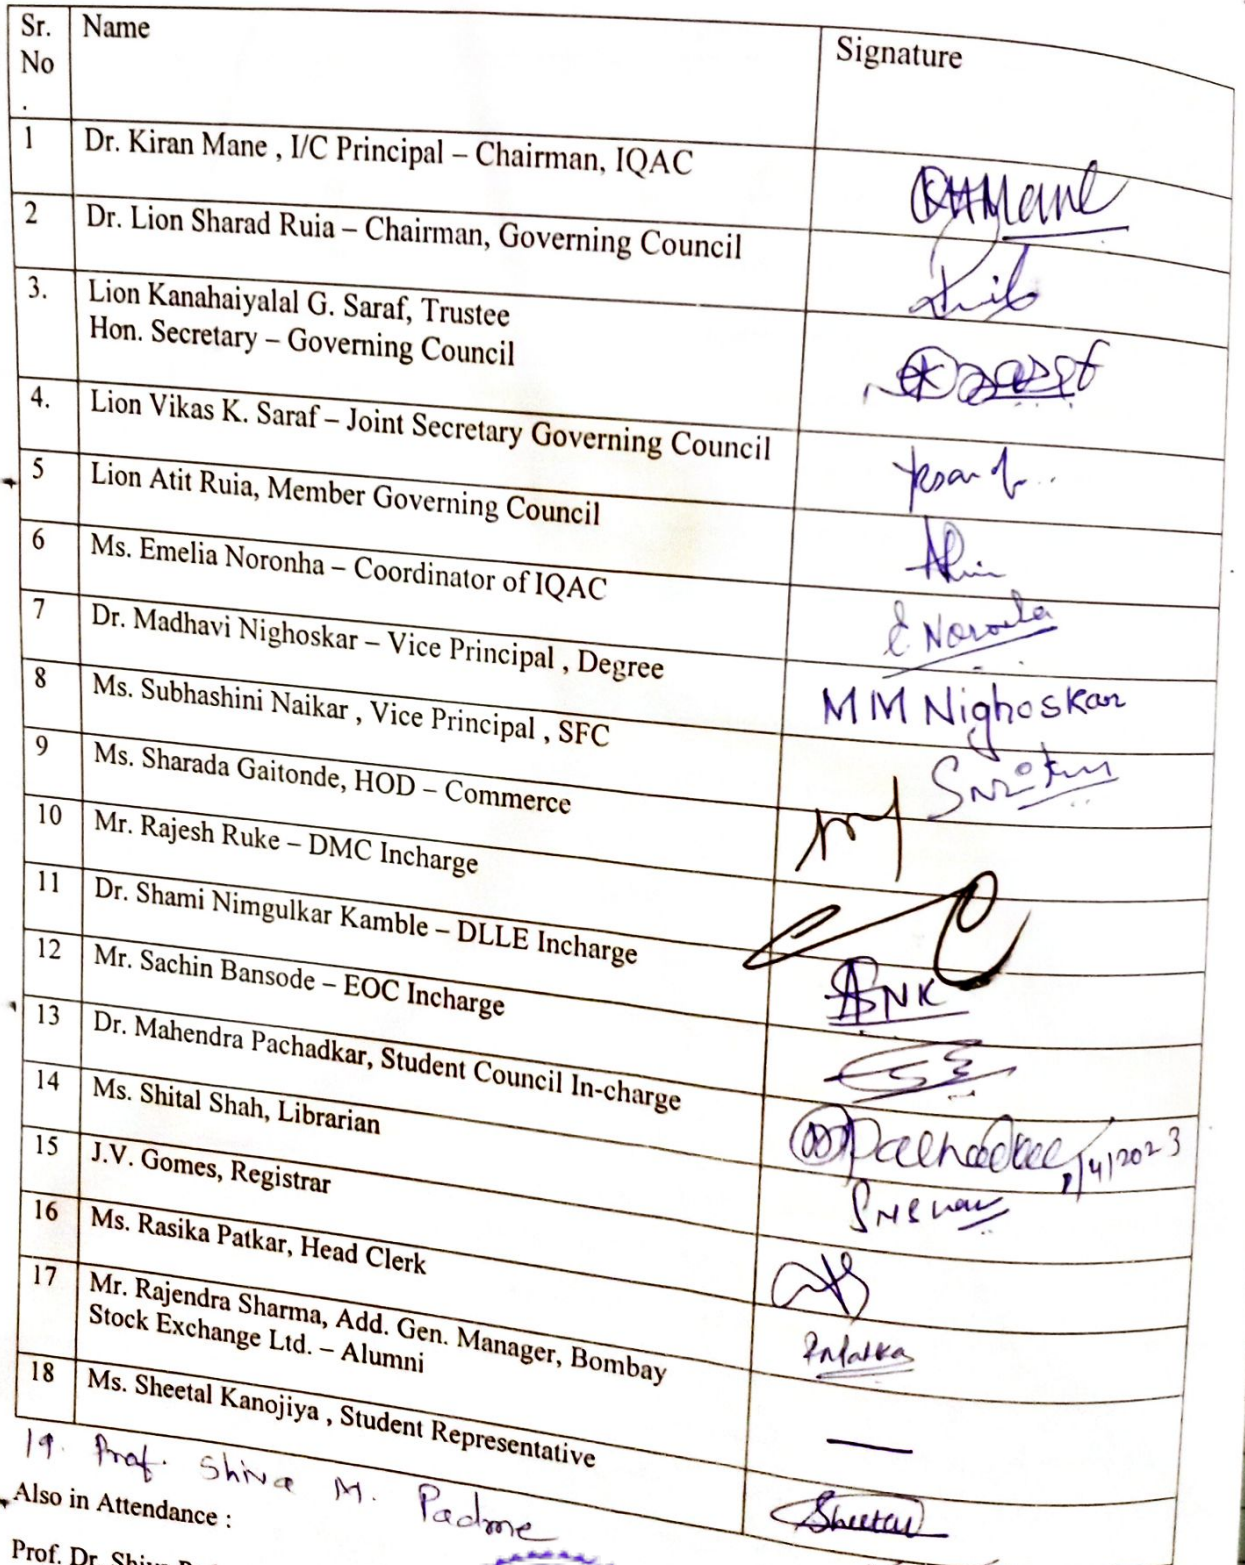 Sr. No . Name Signature
1 Dr. Kiran Mane , I/C Principal – Chairman, IQAC
2 Dr. Lion Sharad Ruia – Chairman, Governing Council
3. Lion Kanahaiyalal G. Saraf, Trustee
Hon. Secretary – Governing Council
4. Lion Vikas K. Saraf – Joint Secretary Governing Council
5 Lion Atit Ruia, Member Governing Council
6 Ms. Emelia Noronha – Coordinator of IQAC
E Noronha
7 Dr. Madhavi Nighoskar – Vice Principal , Degree
MM Nighoskar
8 Ms. Subhashini Naikar , Vice Principal , SFC
9 Ms. Sharada Gaitonde, HOD – Commerce
10 Mr. Rajesh Ruke – DMC Incharge
11 Dr. Shami Nimgulkar Kamble – DLLE Incharge
SNK
12 Mr. Sachin Bansode – EOC Incharge
13 Dr. Mahendra Pachadkar, Student Council In-charge
/4/2023
14 Ms. Shital Shah, Librarian
15 J.V. Gomes, Registrar
16 Ms. Rasika Patkar, Head Clerk
17 Mr. Rajendra Sharma, Add. Gen. Manager, Bombay
Stock Exchange Ltd. – Alumni
—
18 Ms. Sheetal Kanojiya , Student Representative
Sheetal
19. Prof. Shiva M. Padme
Also in Attendance :
Prof. Dr. Shiva